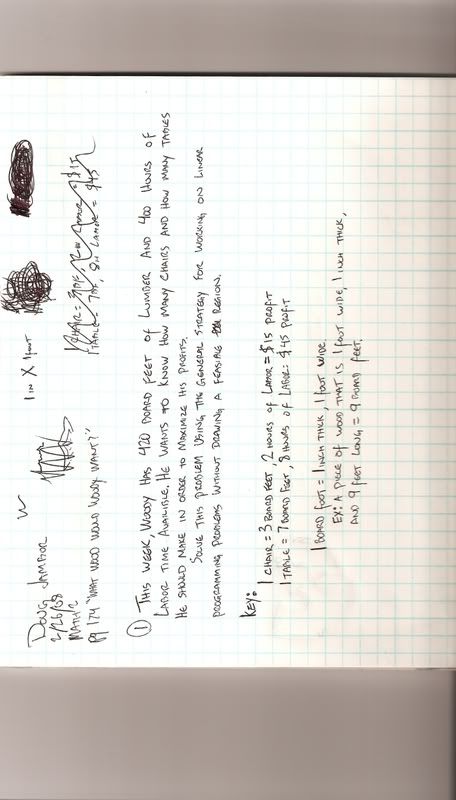 DOUG JAMBOR
2/26/08
MATH 2
Pg 174 "WHAT WOOD WOULD WOODY WANT?"
1 IN X 1 FOOT
TABLE = 7BF, 8H LABOR = $45
① THIS WEEK, WOODY HAS 420 BOARD FEET OF LUMBER AND 400 HOURS OF
LABOR TIME AVAILIBLE. HE WANTS TO KNOW HOW MANY CHAIRS AND HOW MANY TABLES
HE SHOULD MAKE IN ORDER TO MAXIMIZE HIS PROFITS.
SOLVE THIS PROBLEM USING THE GENERAL STRATEGY FOR WORKING ON LINEAR
PROGRAMMING PROBLEMS WITHOUT DRAWING A FEASIBLE REGION.
KEY:
1 CHAIR = 3 BOARD FEET, 2 HOURS OF LABOR = $15 PROFIT
1 TABLE = 7 BOARD FEET, 8 HOURS OF LABOR = $45 PROFIT
1 BOARD FOOT = 1 INCH THICK, 1 FOOT WIDE
EX: A PIECE OF WOOD THAT IS 1 FOOT WIDE, 1 INCH THICK,
AND 9 FEET LONG = 9 BOARD FEET.